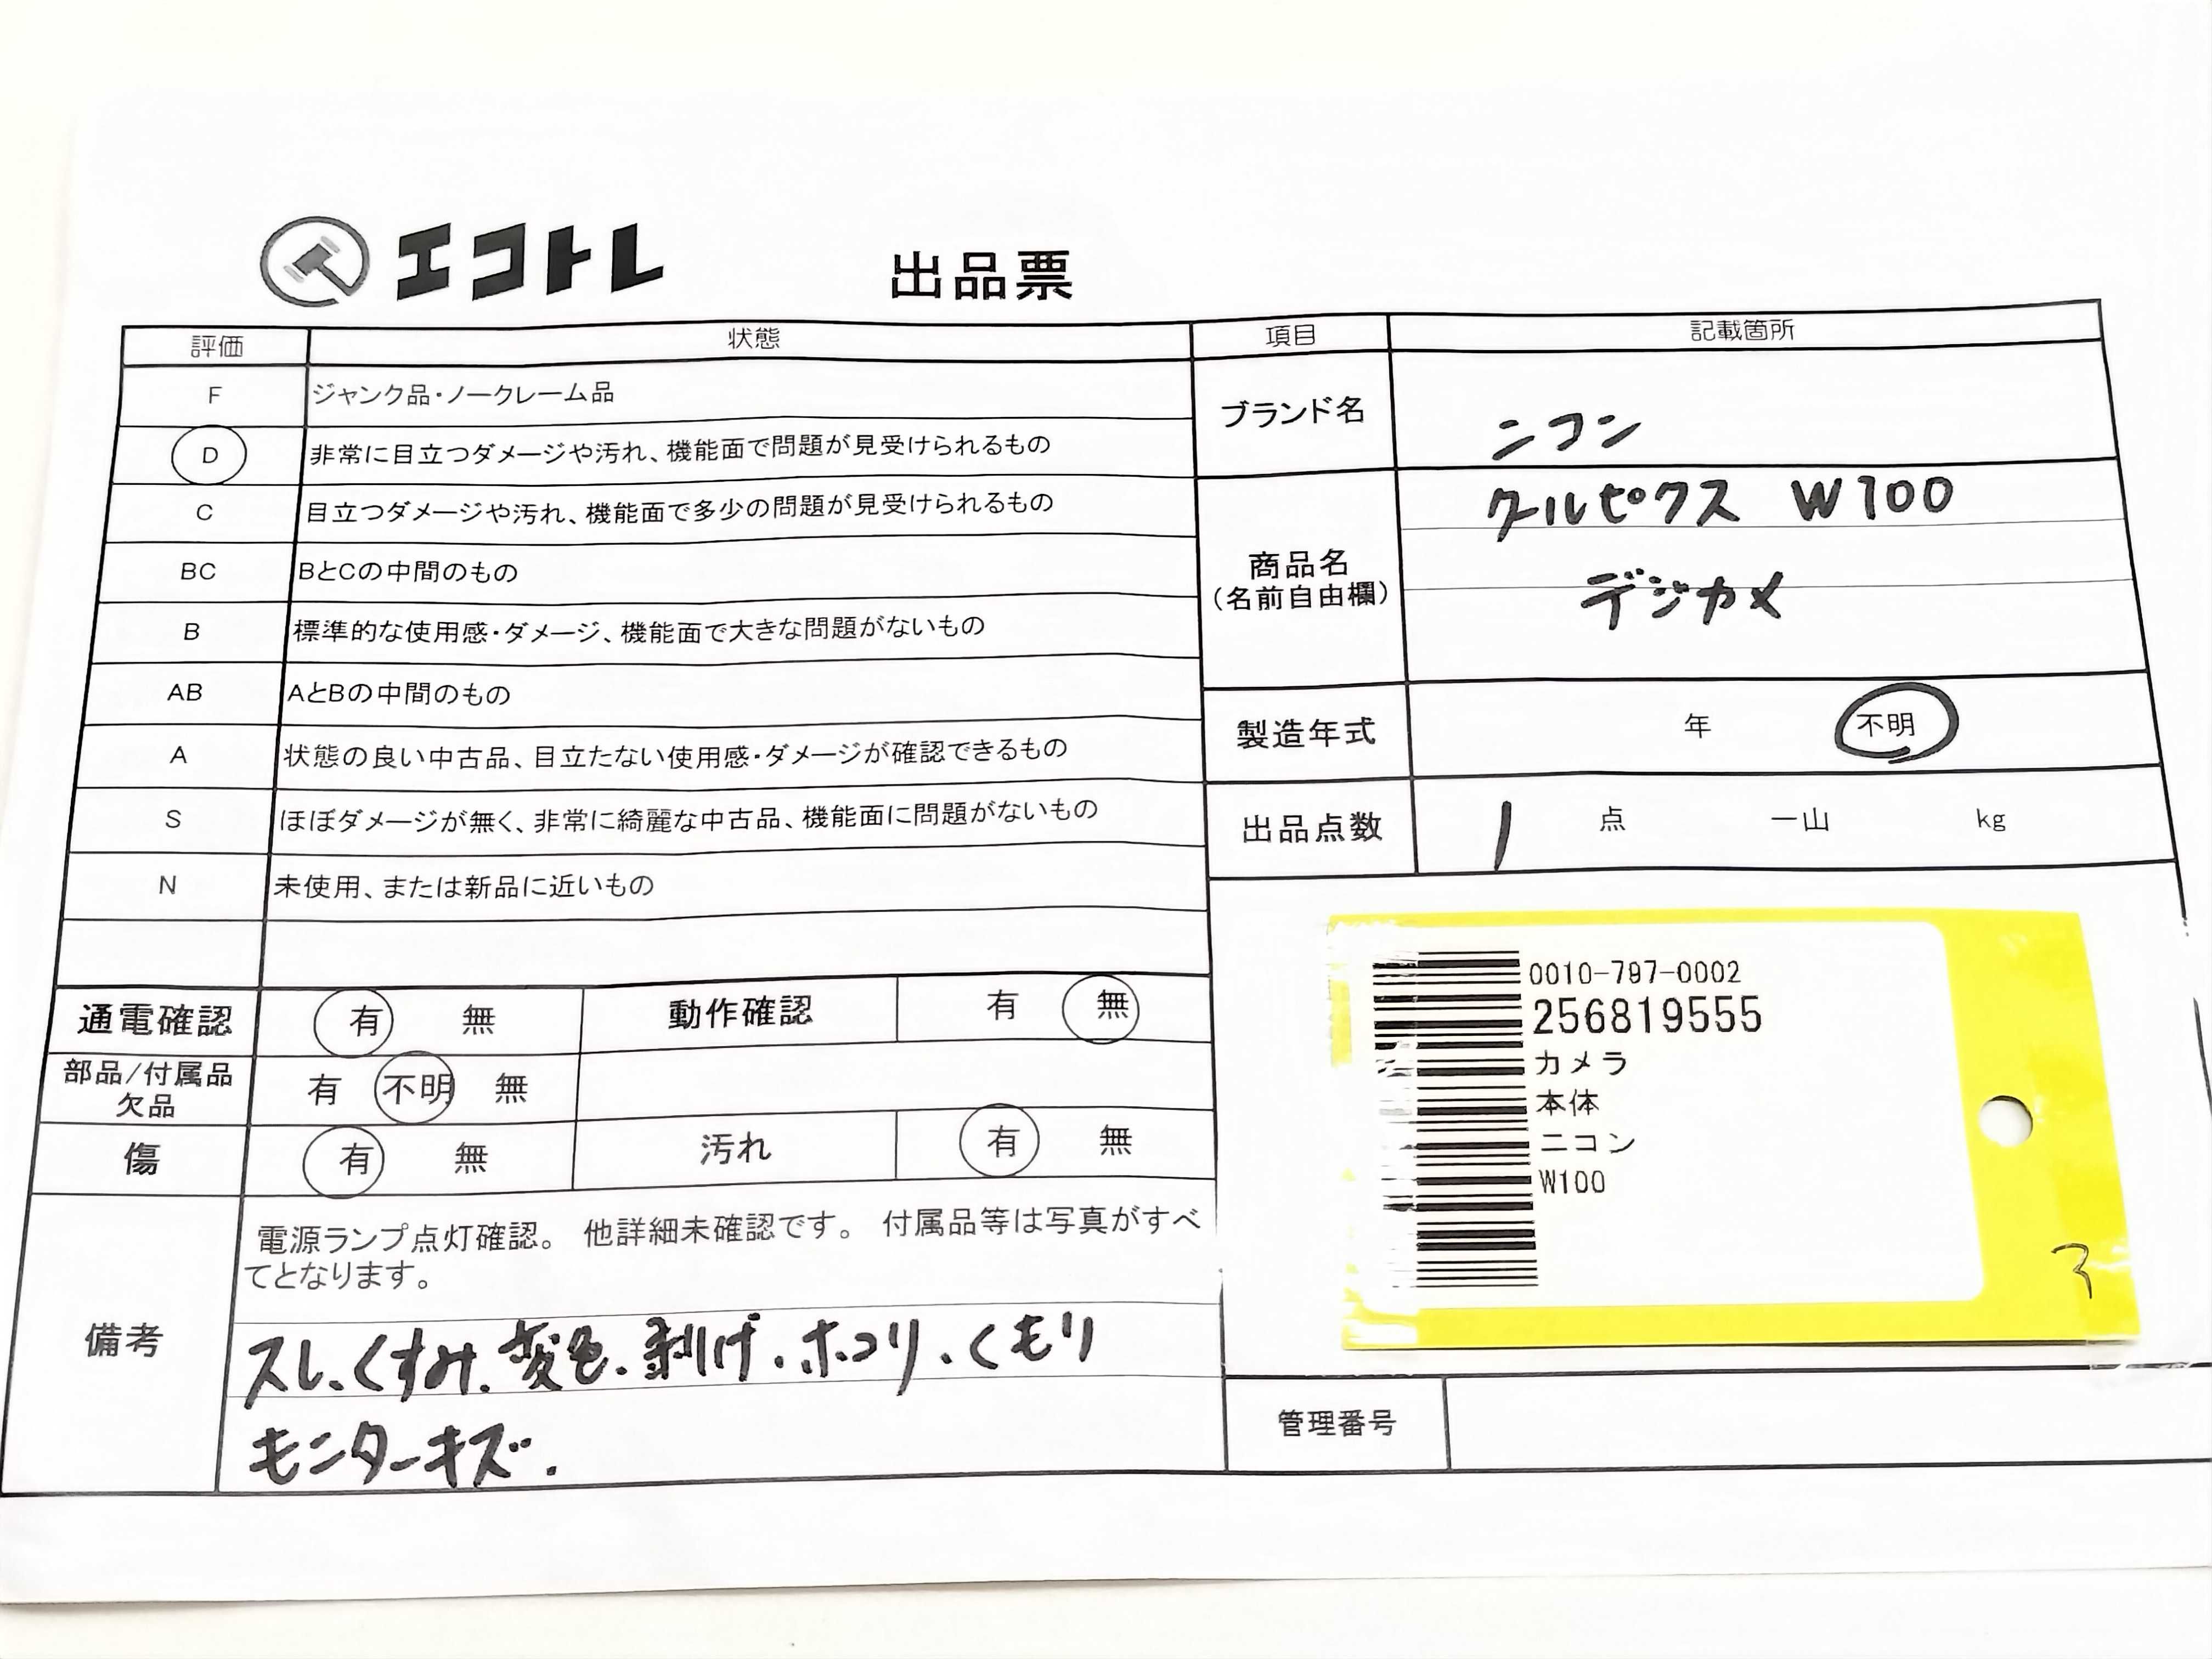 エコトレ 出品票
評価 状態
F ジャンク品・ノークレーム品
D 非常に目立つダメージや汚れ、機能面で問題が見受けられるもの
C 目立つダメージや汚れ、機能面で多少の問題が見受けられるもの
BC BとCの中間のもの
B 標準的な使用感・ダメージ、機能面で大きな問題がないもの
AB AとBの中間のもの
A 状態の良い中古品、目立たない使用感・ダメージが確認できるもの
S ほぼダメージが無く、非常に綺麗な中古品、機能面に問題がないもの
N 未使用、または新品に近いもの
通電確認 有 無 動作確認 有 無
部品/付属品
欠品 有 不明 無
傷 有 無 汚れ 有 無
備考
電源ランプ点灯確認。 他詳細未確認です。 付属品等は写真がすべ
てとなります。
スレ、くすみ、変色、剥げ、ホコリ、くもり
モニターキズ.
項目 記載箇所
ブランド名 ニコン
商品名
(名前自由欄)
クールピクス W100
デジカメ
製造年式 年 不明
出品点数 1 点 一山 kg
0010-797-0002
256819555
カメラ
本体
ニコン
W100
3
管理番号